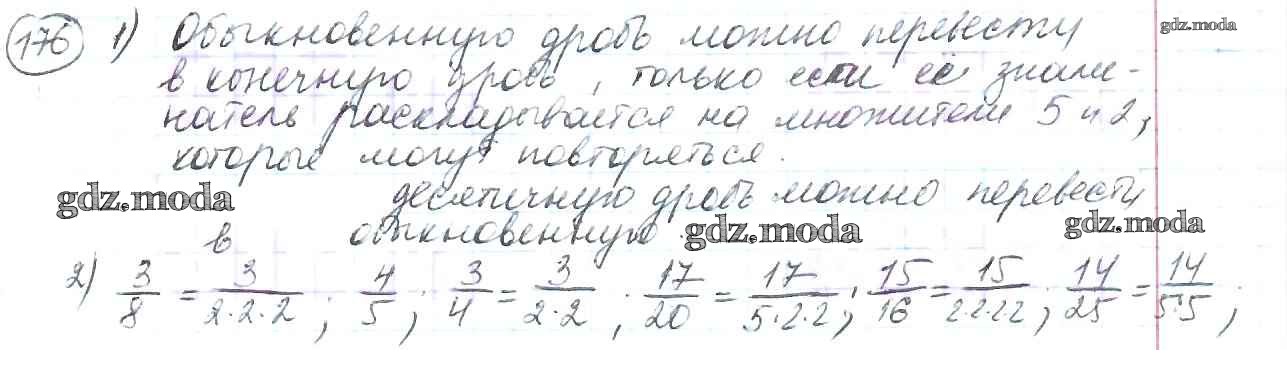 176 1) Обыкновенную дробь можно перевести
gdz.moda
в конечную дробь, только если её знаме-
натель раскладывается на множители 5 и 2,
которые могут повторяться.
gdz.moda десятичную дробь можно перевести
в обыкновенную. gdz.moda gdz.moda
2) 3/8 = 3/2·2·2; 4/5; 3/4 = 3/2·2; 17/20 = 17/5·2·2; 15/16 = 15/2·2·2·2; 14/25 = 14/5·5;